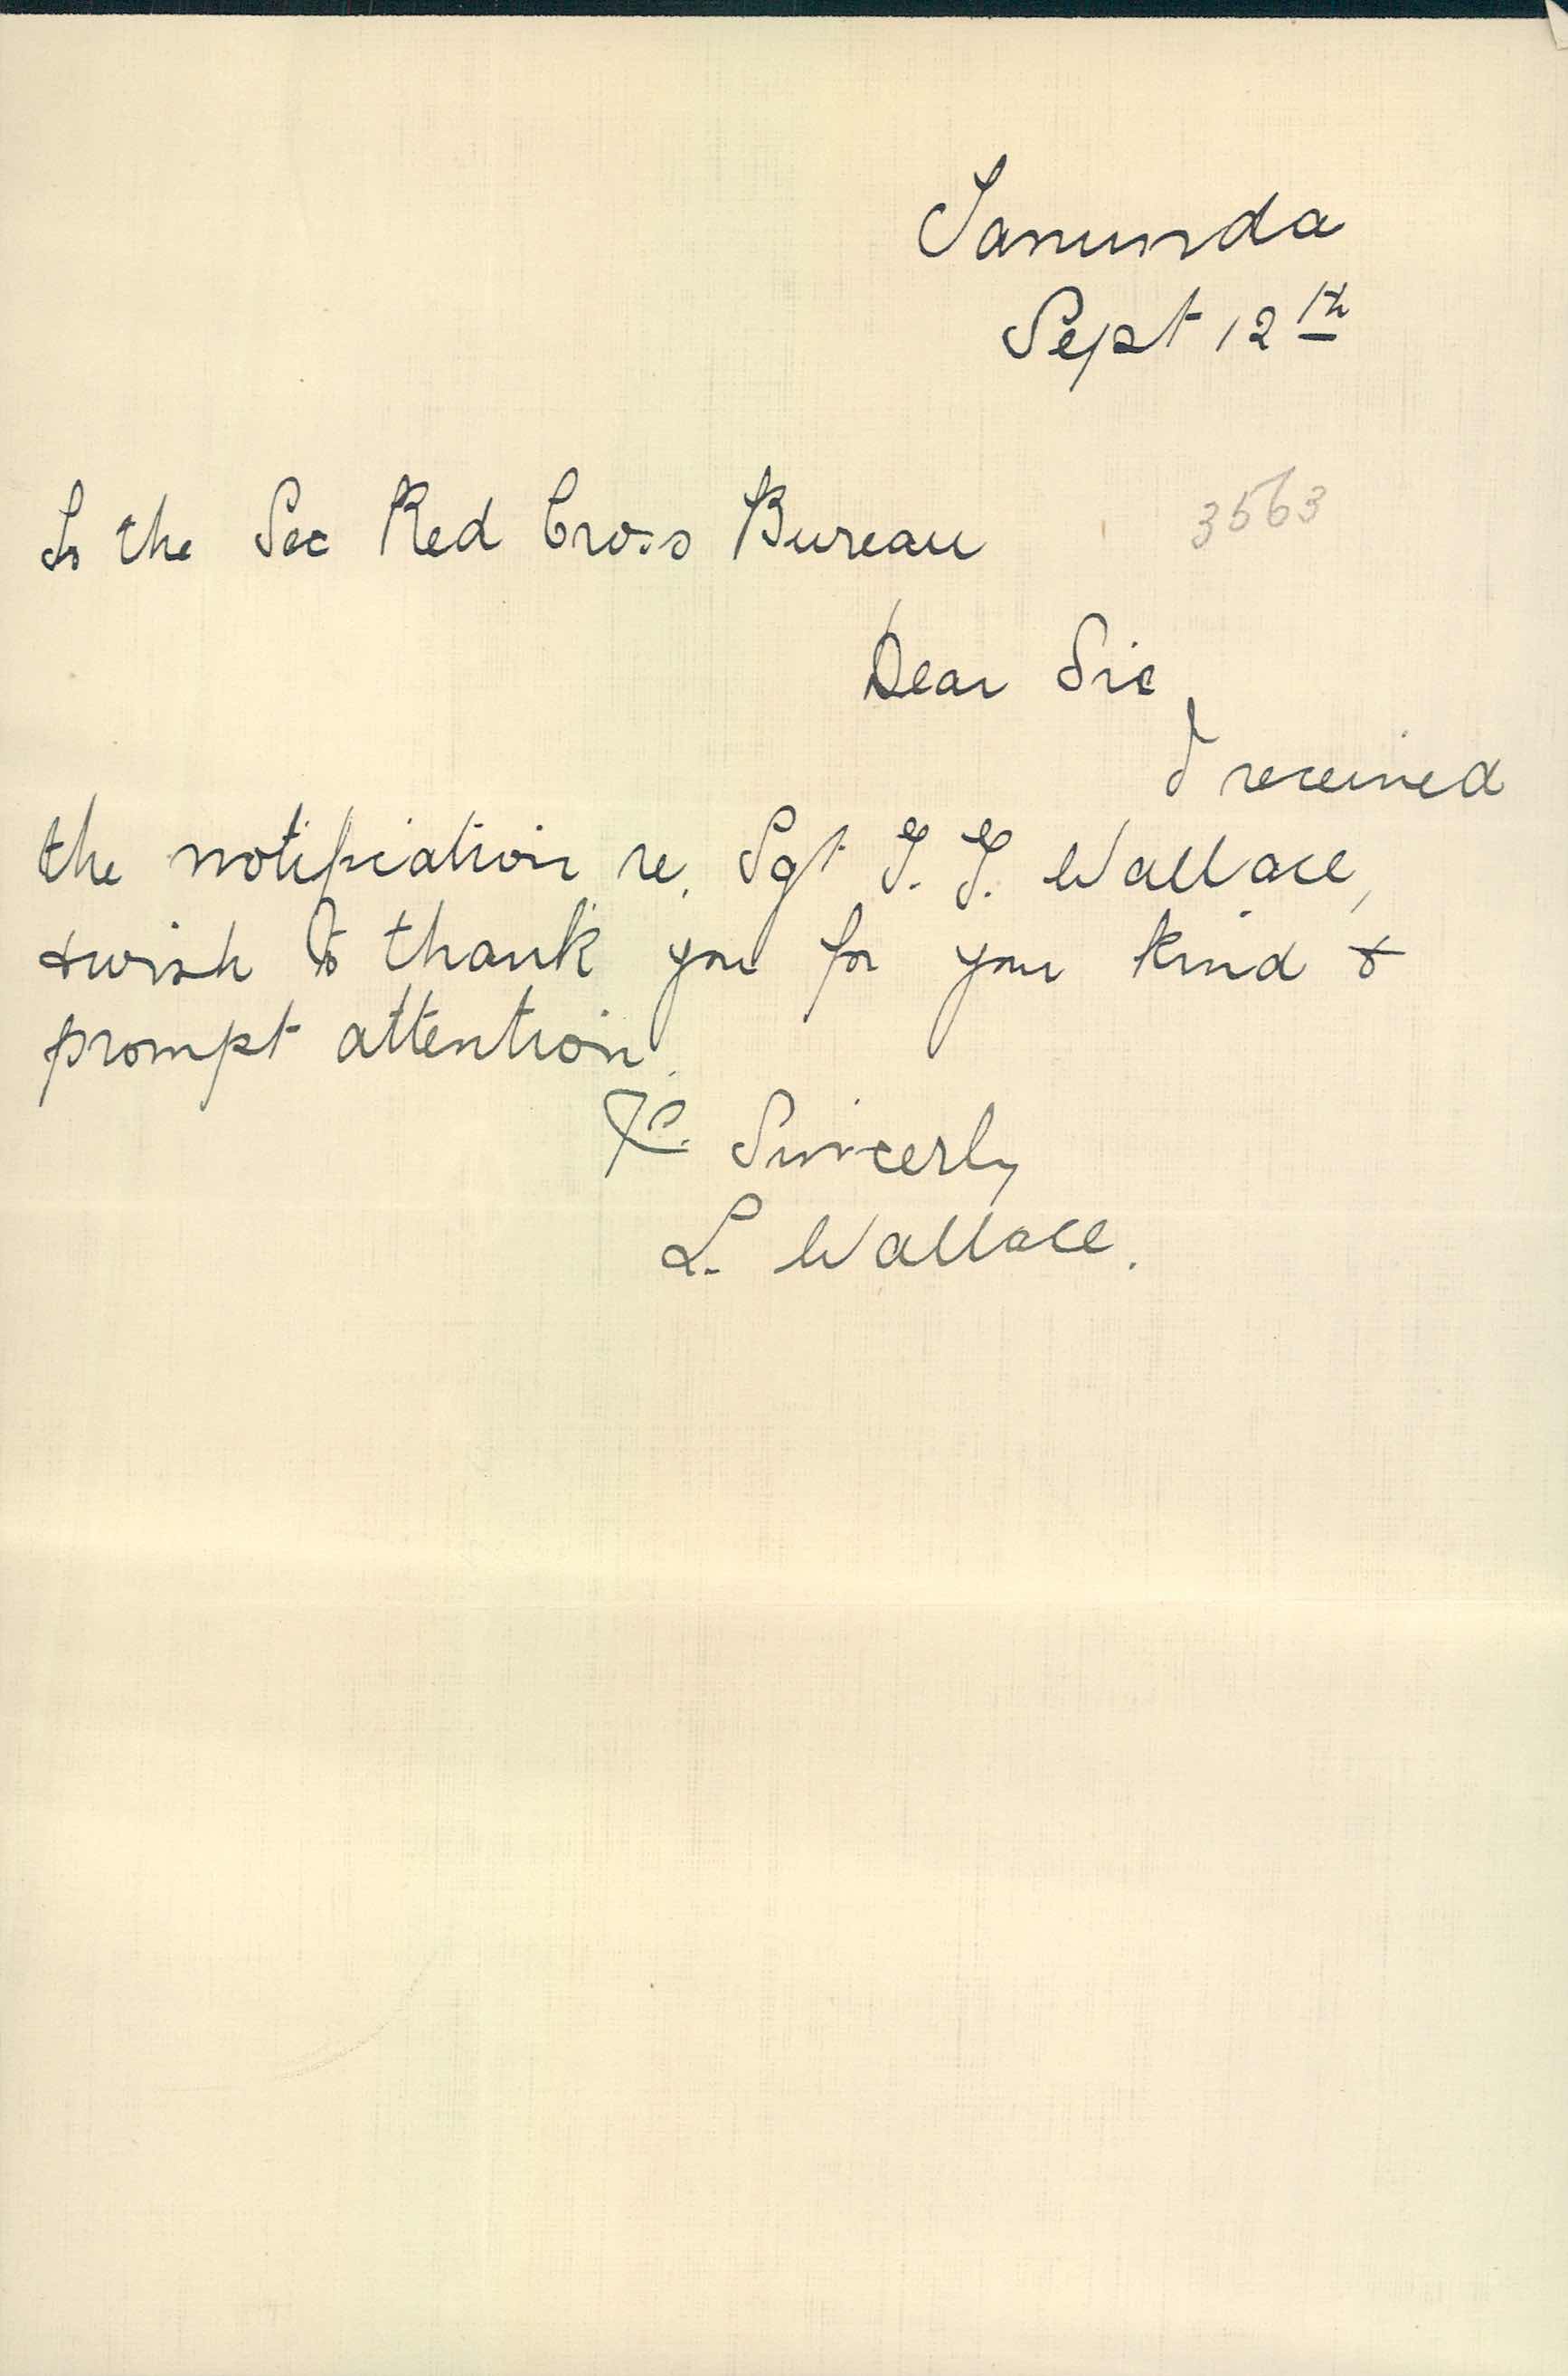 Tanunda
Sept 12th
To the Sec Red Cross Bureau 3563
Dear Sir,
I received
the notification re. Sgt T. T. Wallace,
& wish to thank you for your kind &
prompt attention.
Sincerly
L. Wallace.